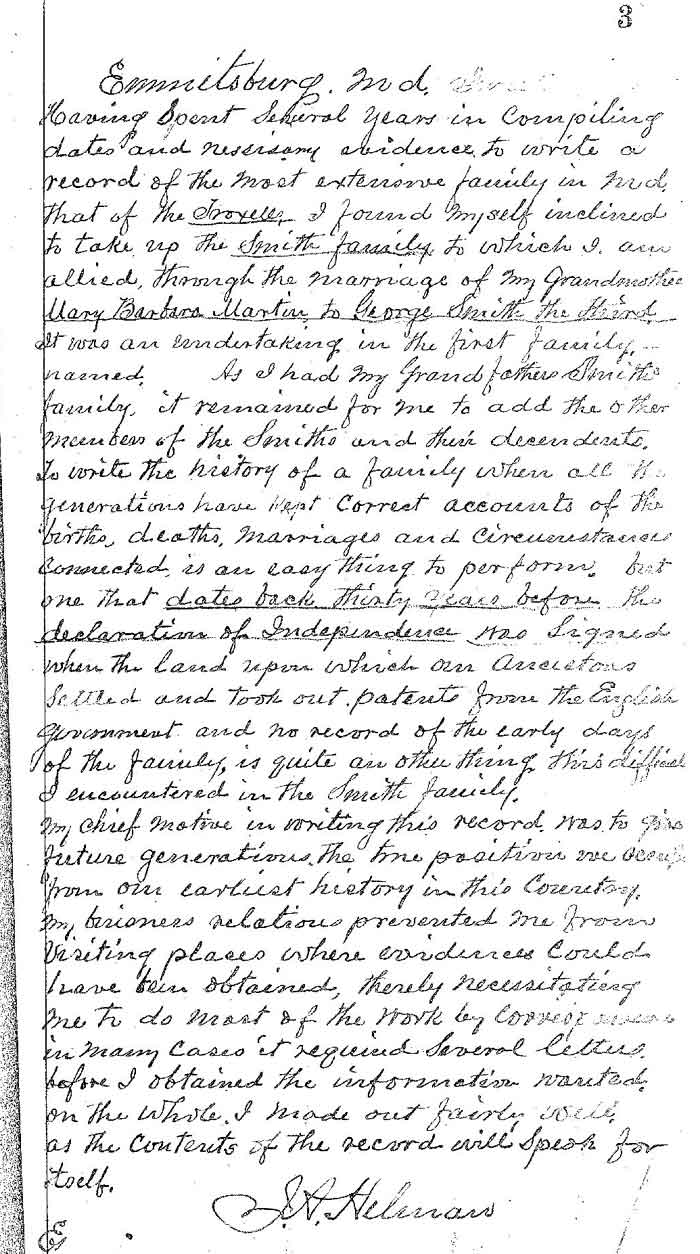 3
Emmitsburg. Md.
Having Spent Several years in Compiling
dates and nessisary evidence, to write a
record of the most extensive family in Md.
that of the Troxells, I found myself inclined
to take up the Smith family, to which I am
allied, through the marriage of my Grandmother
Mary Barbara Martin, to George Smith the third.
It was an undertaking in the first family,
named. As I had my Grandfathers Smiths
family, it remained for me to add the other
members of the Smiths and their decendents.
To write the history of a family when all the
generations have Kept Correct accounts of the
births, deaths, marriages and Circumstances
Connected, is an easy thing to perform, but
one that dates back thirty years before the
declaration of Independence was Signed
when the land upon which our Ancestors
Settled and took out patents from the English
government and no record of the early days
of the family, is quite an other thing, this
I encountered in the Smith family.
My Chief motive in writing this record, was to give
future generations, the true position we
from our earliest history in this Country.
My buisness relations prevented me from
Visiting places where evidences Could
have been obtained, therely necessitating
me to do most of the work by
in many Cases it required Several letters
before I obtained the information wanted.
on the whole. I made out fairly well,
as the Contents of the record will Speak for
itself.
J. A. Helman